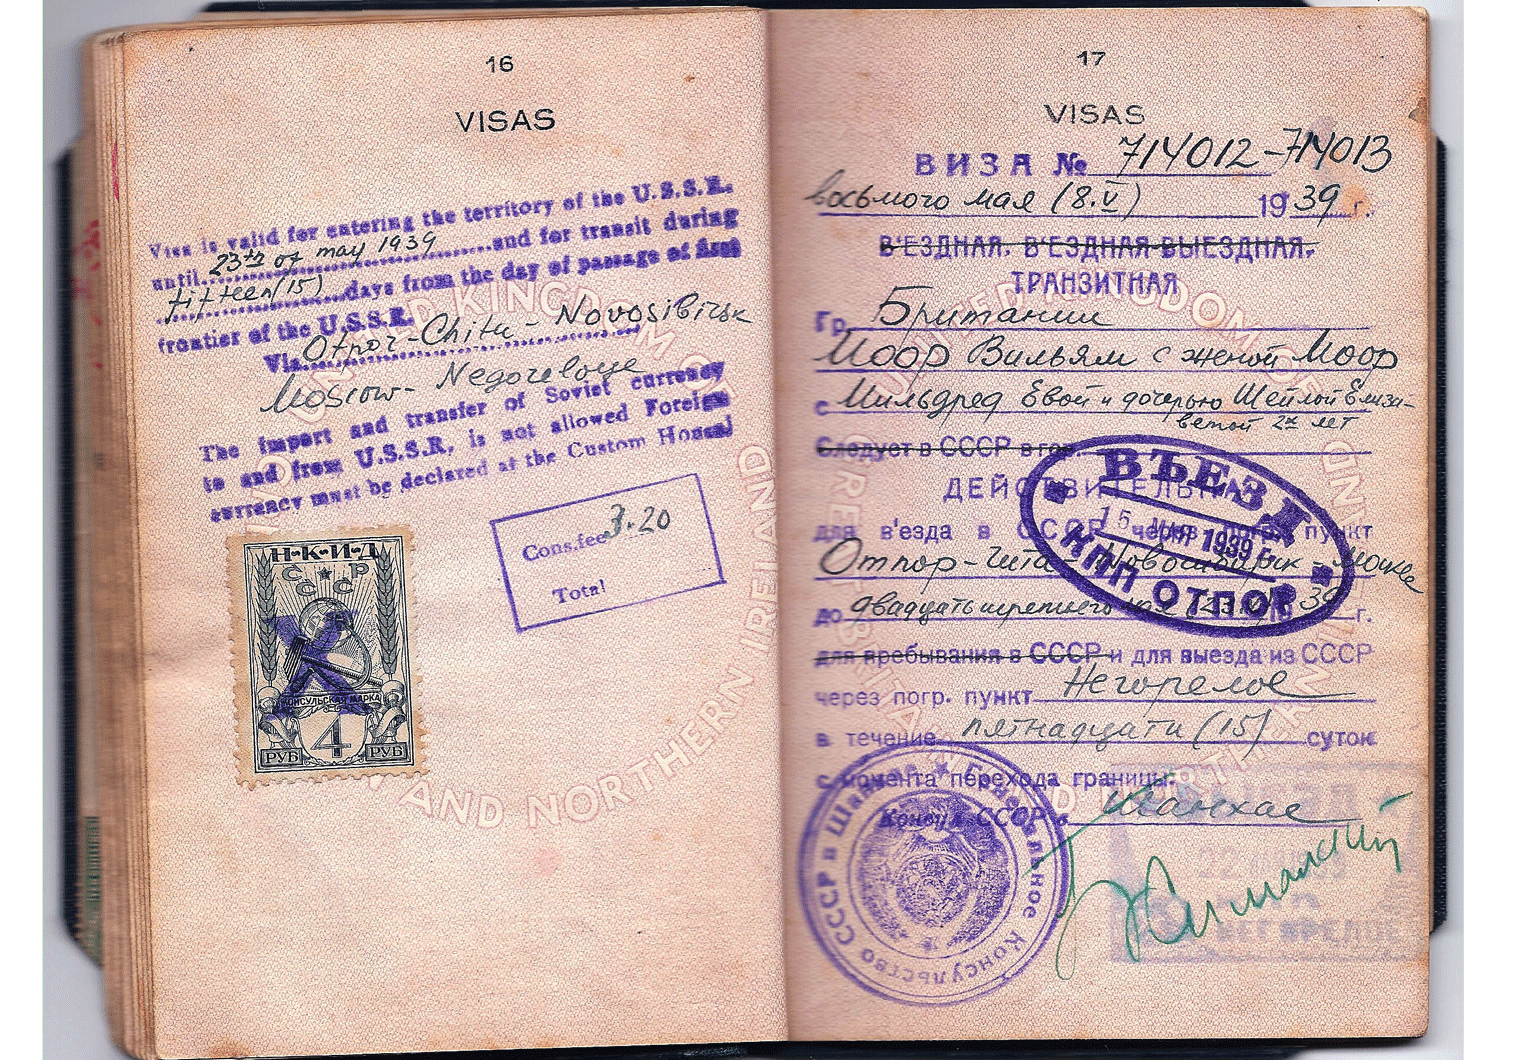 16
VISAS
Visa is valid for entering the territory of the U.S.S.R.
until 23th of may 1939 and for transit during
fifteen (15) days from the day of passage of first
frontier of the U.S.S.R.
Via Otpor-Chita-Novosibirsk
Moscow-Negoreloye
The import and transfer of Soviet currency
to and from U.S.S.R. is not allowed Foreign
currency must be declared at the Custom House
Cons.fee 3.20
Total
Н·К·И·Д
СССР
КОНСУЛЬСКАЯ МАРКА
4
РУБ РУБ
UNITED KINGDOM OF GREAT BRITAIN AND NORTHERN IRELAND
17
VISAS
ВИЗА № 714012-714013
восьмого мая (8.V) 1939 г.
В'ЕЗДНАЯ. В'ЕЗДНАЯ-ВЫЕЗДНАЯ.
ТРАНЗИТНАЯ
Гр. Британии
Моор Вильям с женой Моор
с Милдред Евой и дочерью Шейлой Елиза-
ветой 2х лет
Следует в СССР в гор.
ДЕЙСТВИТЕЛЬНА
для в'езда в СССР через погр. пункт
Отпор-Чита Новосибирск-Москва
до двадцать третьего мая (23.V) 1939 г.
для пребывания в СССР и для выезда из СССР
через погр. пункт Негорелое
в течение пятнадцати (15) суток
с момента перехода границы.
Консул СССР в Шанхае
ВЪЕЗД
15 МАЯ 1939 г.
КПП ОТПОР
Генеральное Консульство СССР в Шанхае
НЕГОРЕЛОЕ
UNITED KINGDOM OF GREAT BRITAIN AND NORTHERN IRELAND